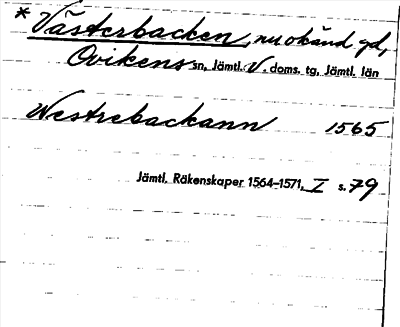 * Västerbacken, nu okänd gd,
Ovikens sn, Jämtl. V. doms. tg, Jämtl. län
Westrebackann 1565
Jämtl. Räkenskaper 1564-1571, I s. 79